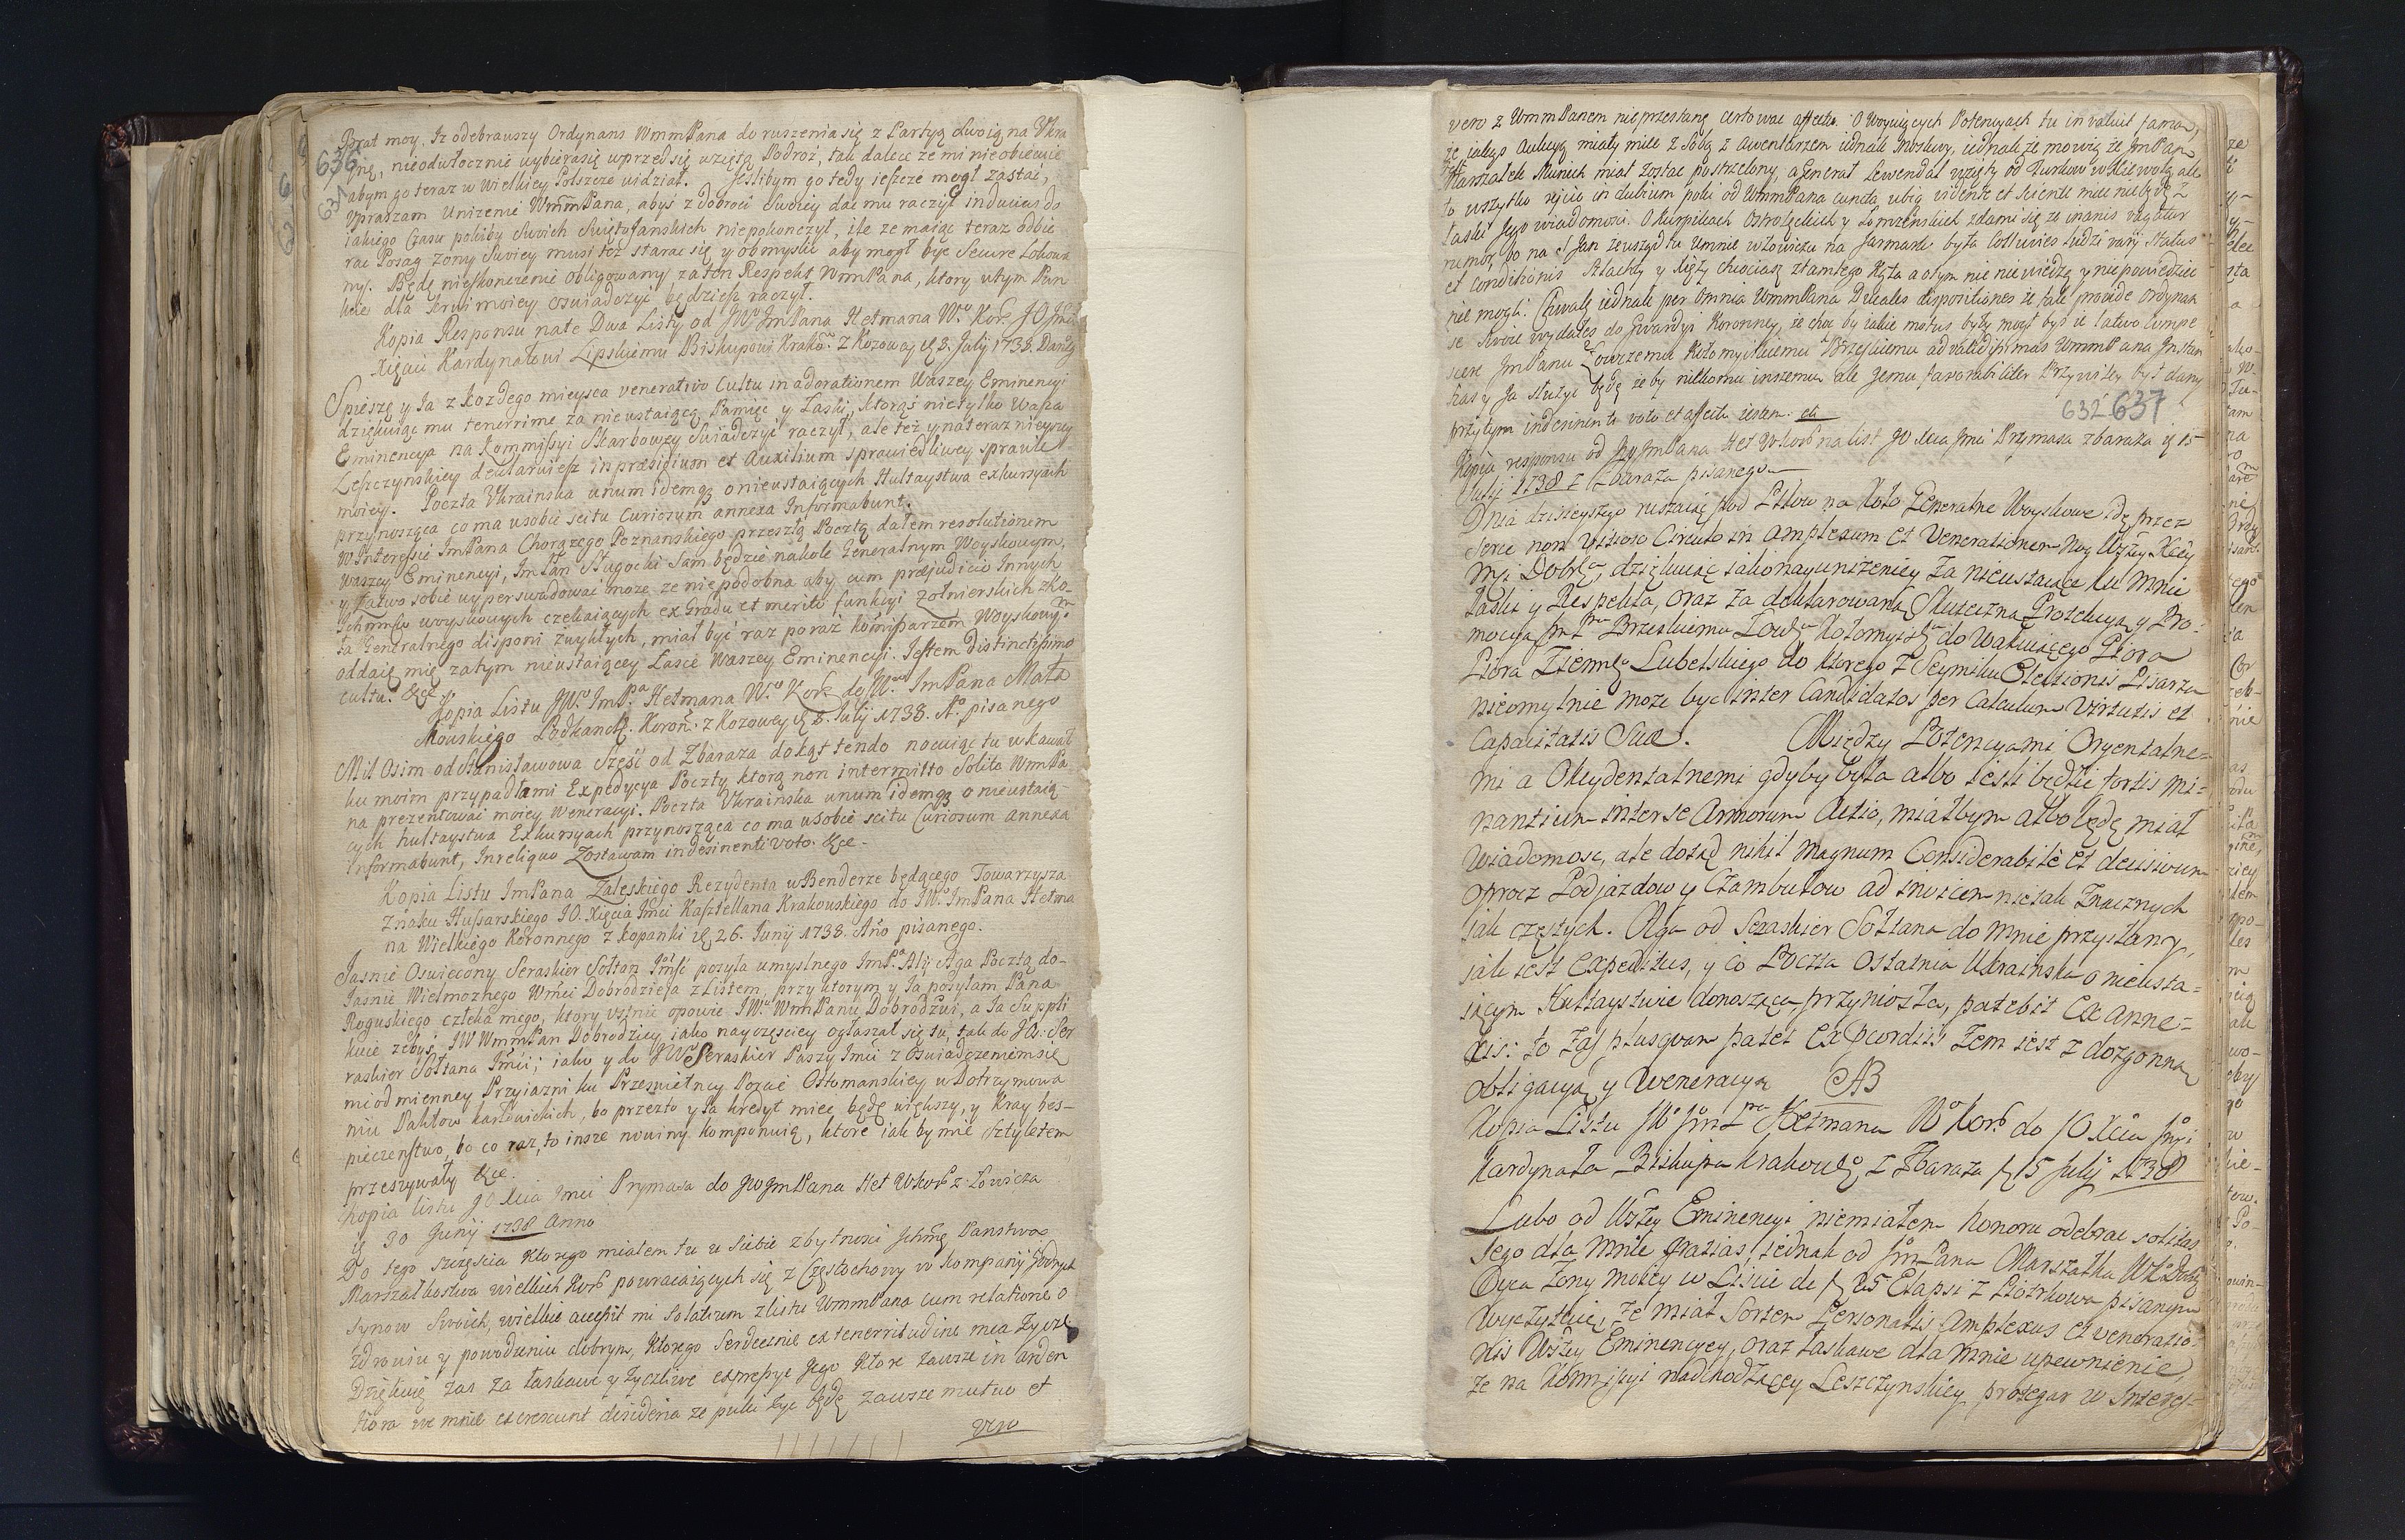 636
631
Brat moy, Iz odebrawszy Ordynans WmmPana do ruszenia się z Partyą Swoią na Ukra
inę, nieodwłocznie wybiera się w przedsię wziętą Podroż, tak dalece ze mi nie obiecuie
abym go teraz w Wielkiey Polszcze widział. Jeslibym go tedy ieszcze mogł zastać,
Upraszam Unizenie WmmPana, abyś z dobroci Swoiey dać mu raczył inducias do
iakiego Czasu pokiby Swoich Swiętojanskich niepokonczył, ile ze maiąc teraz odbie
rac Posag zony Swoiey musi też starac się y obmyslic aby mogł byc Secure Lokowa
ny. Będę nieskonczenie obligowany za ten Respekt WmPana, ktory w tym Pun
kcie dla Krwi moiey oswiadczyć będziesz raczył.
Kopia Responsu na te Dwa Listy od JWo ImPana Hetmana W.o Kor. JO Jmci
Xięciu Kardynałowi Lipskiemu Biskupowi Krako. z Kozowey d 8. July 1738. Dany
Spieszę y Ia z kozdego mieysca venerativo Cultu in adorationem Waszey Eminencyi
dziękuiąc mu tenerrime za nieustaiącą Pamięc y Łaski, ktorąś nie tylko Wasza
Eminencya na Kommissyi Skarbowey Swiadczyć raczył, ale też y na teraznieyszey
Leszczynskiey deklaruiesz in præsidium et Auxilium sprawiedliwey sprawie
moiey. Poczta Ukrainska unum idemq o nieustaiących Hultaystwa exkursyach
przynosząca co ma w sobie scitu Curiosum annexa Informabunt.
W Interessie ImPana Chorązego Poznanskiego przeszłą Pocztą dałem resolutionem
Waszey Eminencyi, ImPan Sługocki Sam będzie na kole Generalnym Woyskowym,
y łatwo sobie wyperswadować może ze niepodobna aby cum præjudicio Innych
Ichmsw woyskowych czekaiących ex Gradu et merito funkcyi zołnierskich z ko-
ła Generalnego disponi zwykłych, miał być raz poraz kommisarzem Woyskowym.
oddaię mię zatym nieustaiącey Łasce Waszey Eminencyi. Jestem distinctissimo
cultu. &ce
Kopia Listu JWo ImPa Hetmana W.o Kor do JW. ImPana Mała
Mowskiego Podkancl. Koron. z Kozowey d 8. July 1738. Ao pisanego
Mil Osim od Stanisławowa Sześć od Zbaraza dokąt tendo nocuiąc tu w kawał
ku moim przypadłami Expedycya Poczty ktorą non intermitto Solita WmPa
na prezentować moiey Weneracyi. Poczta Ukrainska unum idemq o nieustaią-
cych hultaystwa Exkursyach przynosząca co ma w Sobie scitu Curiosum annexa
Informabunt, In reliquo Zostawam indesinenti voto. &ce.
Kopia Listu ImPana Zaleskiego Rezydenta w Benderze będącego Towarzysza
Znaku Hussarskiego JO. Xięcia Imci Kasztellana Krakowskiego do JWo ImPana Hetma
na Wielkiego Koronnego z kopanki d 26. Junij 1738. Ano pisanego.
Jasnie Oswięcony Seraskier Sołtan Jmść posyła umyslnego ImPa Aly Aga Pocztą do-
Jasnie Wielmoznego Wmci Dobrodzieja z Listem, przy ktorym y Ia posyłam Pana
Roguskiego człeka mego, ktory ustnie opowie JWo WmPanu Dobrodzwi, a Ia Suppli
kuie zebyś JW WmmPan Dobrodziey, iako nayczęsciey ogłaszał się tu, tak do Ja: Se
raskier Sołtana Imci; iako y do JWo Seraskier Paszy Imci z Oswiadczeniem się
nieodmienney Przyiazni ku Przeswietney Porcie Ottomanskiey w Dotrzymowa
niu Paktow karłowickich, bo przez to y Ia kredyt miec będę większy, y Kray bes-
pieczenstwo, bo co raz, to insze nowiny komponuią, ktore iak by mie sztyletem
przeszywały &ce.
Kopia listu JO Xcia Imci Prymasa do JWo JmPana Het WKor z Łowicza
d 30 Junij 1738 Anno
Do tego szczęscia ktorego miałem tu u siebie z bytnosci Ichmę Panstwa
Marszałkostwa wielkich Kor powracaiących się z Częstochowy w kompanij Godnych
synow Swoich, wielkie accessit mi Solatium z listu WmmPana cum relatione o
zdrowiu y powodzeniu dobrym, ktorego Serdecznie ex teneritudine mea zyczę
Dziękuię zas za łaskawe y zyczliwe expressye Jego ktore zawsze in arden
tiora we mnie excrescunt desideria ze puki zyc będę zawsze mutuo et
vero
vero z WmmPanem nieprzestanę certować affectu. O Woyuiących Potencyach tu invaluit fama,
że iakąs aukcyą miały mieć z Sobą z awentarzem iednak Moskwy, iednak że mowią że JmPan
Marszałek Munich miał zostac postrzelony, a Generał Lewendal wzięty od Turkow w Niewolą ale
to wszytko rejcio in dubium poki od WmmPana cuncta ubiq vidente et Sciente miec nie będę z
łaski Jego wiadomosci. O kurpikach Ostrołęckich y Łomzenskich zdami się ze inanis vagatur
rumor, bo na S Jan zewsząd tu u mnie w Łowiczu na Jarmark była Colluvies Ludzi varij Status
et conditionis Szlachty y Xięzy chociasz z tamtego Kąta a o tym nic nie wiedzą y niepowiedzieć
nie mogli. Chwalę iednak per Omnia WmmPana Ducales dispositiones że tak provide Ordynan
se Swoie wydałeś do Gwardyi Koronney, że choc by iakie motus były mogł byś ie łatwo compe
scere JmPanu Łowczemu Kołomyiskiemu Brzeskiemu ad validissimas WmmPana Instan
tias y Ja słuzyć będę żeby nikkomu inszemu ale Jemu favorabiliter Przywiley był dany
przytym indesinente voto et affectu iestem. etc
632 637
Kopia responsu od JWJmPana Het WKor na list JO Xcia Jmci Prymasa z baraza d 15
Julij 1738 z Zbaraza pisanego
Dnia dzisieyszego ruszaiąc pod Lwow na Koło Generalne Woyskowe idę przez
serce non vitioso Circulo in amplexum et Venerationem Nog Wszey Xcey
Mci Dobrea, dziękuiąc iako nayunizeniey za nieustaiące ku mnie
łaski y Respekta, oraz za deklarowaną Skuteczną Protekcyą y Pro-
mocyą JmPnu Brzeskiemu Łowczu Kołomysku do Wakuiącego Piora
Piora Ziemgo Lubelskiego do ktorego z Seymiku Electionis Pisarza
nieomylnie moze byc inter Candidatos per Calculum Virtutis et
Capacitatis Suæ. Między Potencyami Oryentalne-
mi a Okcydentalnemi gdyby była albo iesli będzie fortis mi-
nantium inter se Armorum Actio, miałbym albo będę miał
Wiadomosc, ale dotąd nihil magnum Considerabile et decisivum
oprocz Podjazdow y Czambułow ad invicem nie tak znacznych
jak częstych. Aga od Seraskier Sołtana do mnie przysłany,
jak iest expeditus, y co Poczta ostatnia Ukrainska o nieusta-
iącym Hultaystwie donosząca przyniosła, patebit ex anne-
xis: to zas plusquam patet ex præcordiis zem iest z dozgonną
obligacyą y Weneracyą
Kopia Listu JWo JmPna Hetmana Wo Kor do JO Xcia Jmci
Kardynała Biskupa Krakowgo z Zbaraza d 15 July 1738
Lubo od Wszey Eminencyi niemiałem honoru odebrac solitas
Jego dla mnie gratias, iednak od JmPana Marszałka WKo Dobrgo
Oyca Zony moiey w Liscie de d 25 Elapsi z Piotrkowa pisanym
wyczytuię, ze miał Sortem Personalis Amplexus et veneratio-
nis Wszey Eminencyey, oraz łaskawe dla mnie upewnienie,
ze na Kommissyi nadchodzącey Leszczynskiey protegar w Interes-